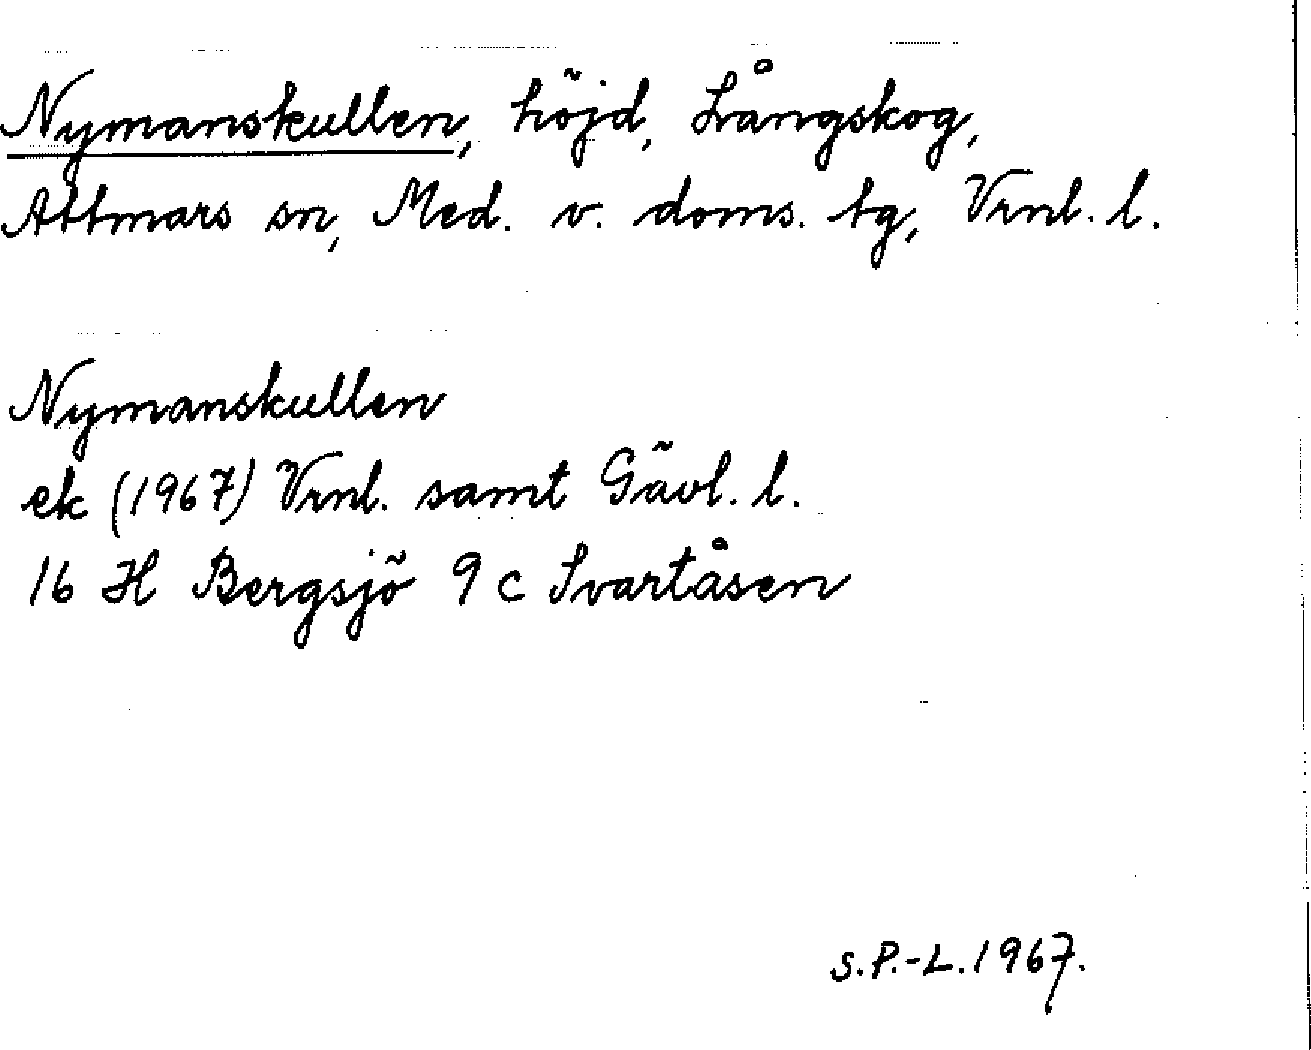 Nymanskullen, höjd, Långskog,
Attmars sn, Med. v. doms. tg, Vrnl. l.
Nymanskullen
ek (1967) Vrnl. samt Gävl. l.
16 H Bergsjö 9 c Svartåsen
S.P.-L. 1967.